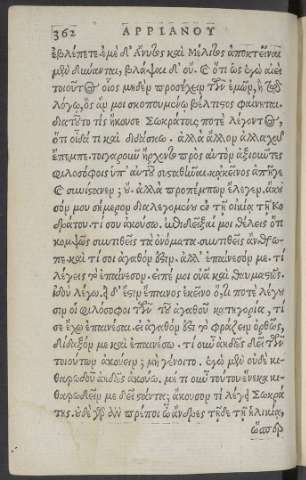 362 ΑΡΡΙΑΝΟΥ
ἐβλέπετε. ἐμὲ δ' Ἄνυτος καὶ Μέλιτος ἀποκτεῖναι
μὲν δύνανται, βλάψαι δ' οὔ. ὅτι ὡς ἐγὼ αἰεὶ
τοιοῦτος οἷος μηδενὶ προσέχειν τῶν ἐμῶν, ἢ τῷ
λόγῳ, ὃς ἄν μοι σκοπουμένῳ βέλτιστος φαίνηται.
διὰ τοῦτο τίς ἤκουσε Σωκράτους ποτὲ λέγοντος,
ὅτι οἶδά τι καὶ διδάσκω. ἀλλὰ ἄλλον ἀλλαχοῦ
ἔπεμπε. τοιγαροῦν ἤρχοντο πρὸς αὐτὸν ἀξιοῦντες
φιλοσόφοις ὑπ' αὐτοῦ συσταθῆναι. κἀκεῖνος ἀπῆγε
καὶ συνίστανεν; οὔ. ἀλλὰ προπέμπων ἔλεγεν. ἄκου
σόν μου σήμερον διαλεγομένου ἐν τῇ οἰκίᾳ τῇ Κο
δράτου. τί σου ἀκούσω. ἐπιδεῖξαί μοι θέλεις ὅτι
κομψῶς συντιθεῖς τὰ ὀνόματα. συντιθεῖς ἄνθρω-
πε. καὶ τί σοι ἀγαθόν ἐστιν. ἀλλ' ἐπαίνεσόν με. τί
λέγεις τὸ ἐπαίνεσον. εἰπέ μοι οὐᾶ καὶ θαυμαστῶς.
ἰδοὺ λέγω. εἰ δ' ἐστὶν ἔπαινος ἐκεῖνο ὅ, τι ποτὲ λέγου
σιν οἱ φιλόσοφοι τῶν τοῦ ἀγαθοῦ κατηγορία, τί
σε ἔχω ἐπαινέσαι. εἰ ἀγαθόν ἐστι τὸ φράζειν ὀρθῶς,
δίδαξόν με καὶ ἐπαινέσω. τί οὖν ἀηδῶς δεῖ τῶν
τοιούτων ἀκούειν; μὴ γένοιτο. ἐγὼ μὲν οὐδὲ κι-
θαρῳδοῦ ἀηδῶς ἀκούω. μή τι οὖν τούτου ἕνεκα κι-
θαρῳδεῖν με δεῖ στάντα; ἄκουσον τί λέγει Σωκρά
της. οὐδὲ γὰρ ἂν πρέποι ὦ ἄνδρες τῇδε τῇ ἡλικίᾳ,
ὥσπερ